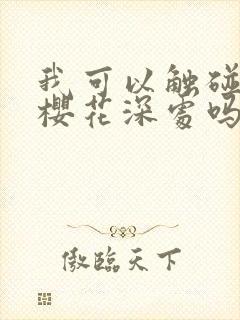 我可以触碰
樱花深处吗
傲临天下